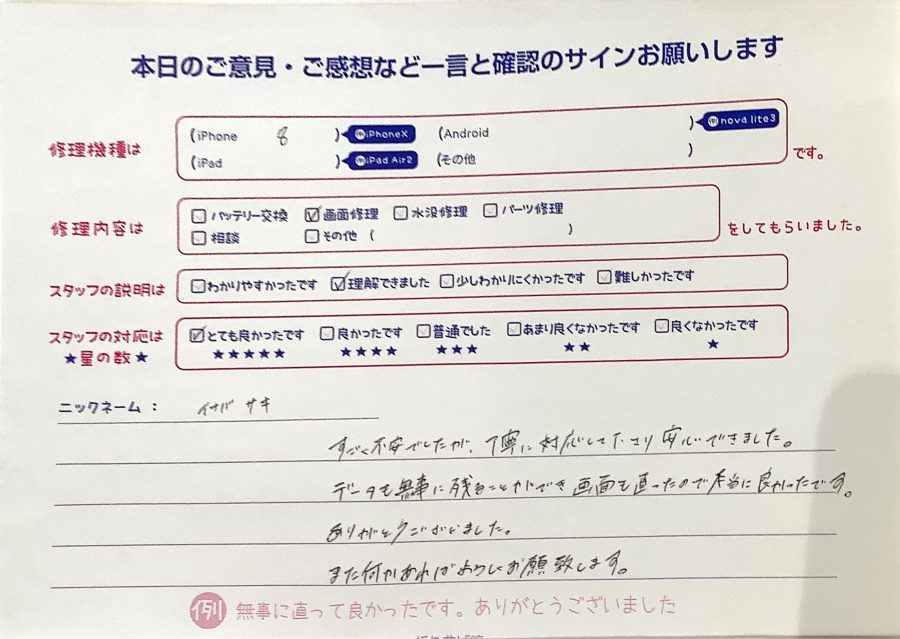 本日のご意見・ご感想など一言と確認のサインお願いします
修理機種は
(iPhone 8 ) iPhoneX (Android ) nova lite3
(iPad ) iPad Air2 (その他 ) です。
修理内容は
バッテリー交換 画面修理 水没修理 パーツ修理
相談 その他 ( ) をしてもらいました。
スタッフの説明は わかりやすかったです 理解できました 少しわかりにくかったです 難しかったです
スタッフの対応は とても良かったです 良かったです 普通でした あまり良くなかったです 良くなかったです
★星の数★ ★★★★★ ★★★★ ★★★ ★★ ★
ニックネーム: イナバ サキ
すごく不安でしたが、丁寧に対応して下さり安心できました。
データも無事に残ることができ画面も直ったので本当に良かったです。
ありがとうございました。
また何かあればよろしくお願い致します。
例 無事に直って良かったです。ありがとうございました